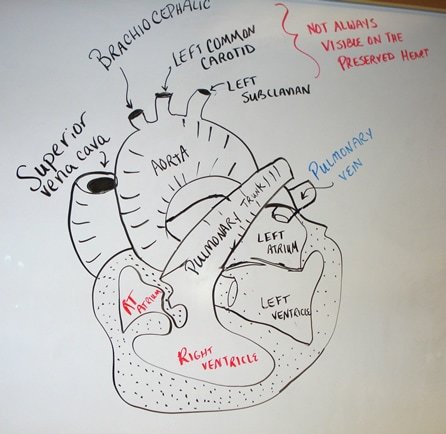 BRACHIOCEPHALIC
LEFT COMMON
CAROTID
LEFT
SUBCLAVIAN
NOT ALWAYS
VISIBLE ON THE
PRESERVED HEART
Superior
vena cava
AORTA
PULMONARY TRUNK
PULMONARY
VEIN
LEFT
ATRIUM
RT
ATRIUM
LEFT
VENTRICLE
RIGHT
VENTRICLE